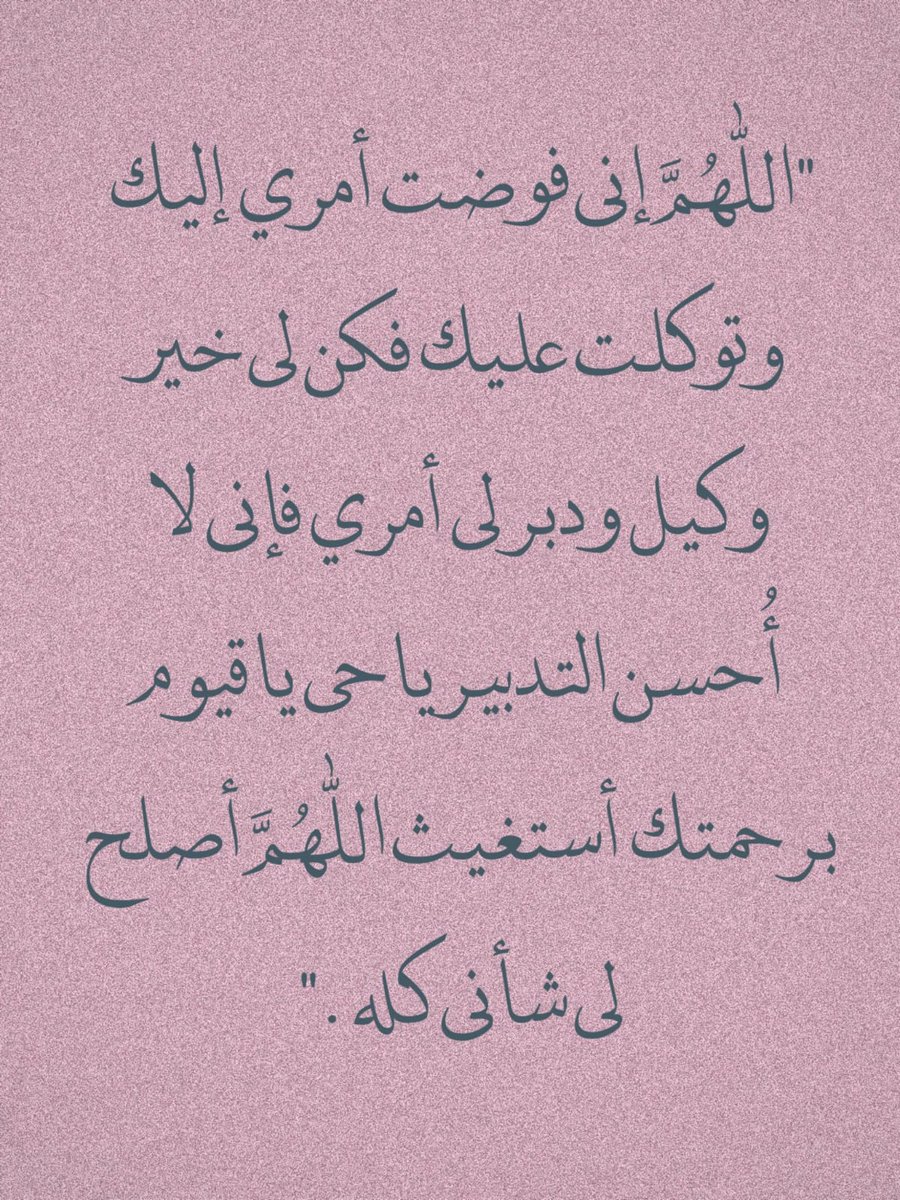 "اللّٰهُمَّ إنى فوضت أمري إليك
وتوكلت عليك فكن لى خير
وكيل ودبر لى أمري فإنى لا
أُحسن التدبير يا حى يا قيوم
برحمتك أستغيث اللّٰهُمَّ أصلح
لى شأنى كله ."